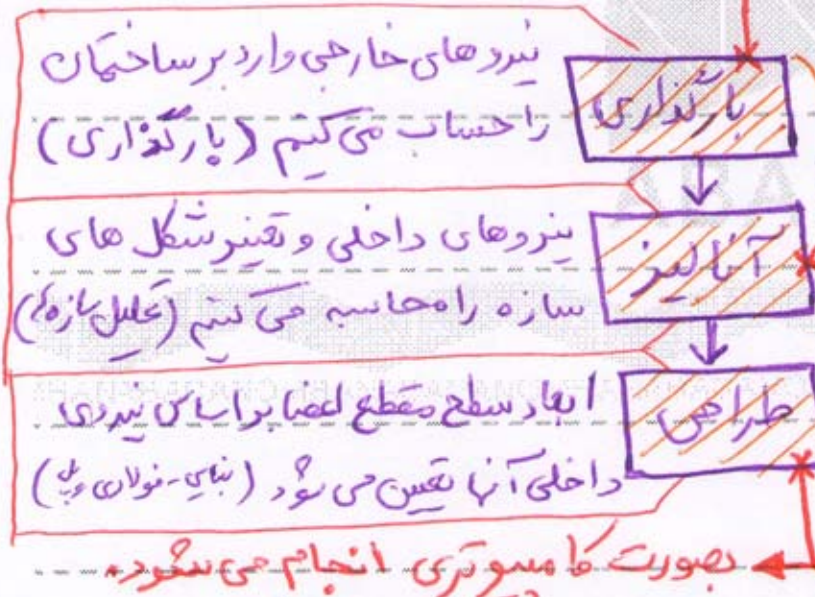 بارگذاری
نیروهای خارجی وارد بر ساختمان
را حساب می کنیم (بارگذاری)
آنالیز
نیروهای داخلی و تغییر شکل های
سازه را محاسبه می کنیم (تحلیل سازه)
طراحی
ابعاد سطح مقطع اعضا بر اساس نیروی
داخلی آنها تعیین می شود (بتنی - فولادی)
بصورت کامپیوتری انجام می شود.